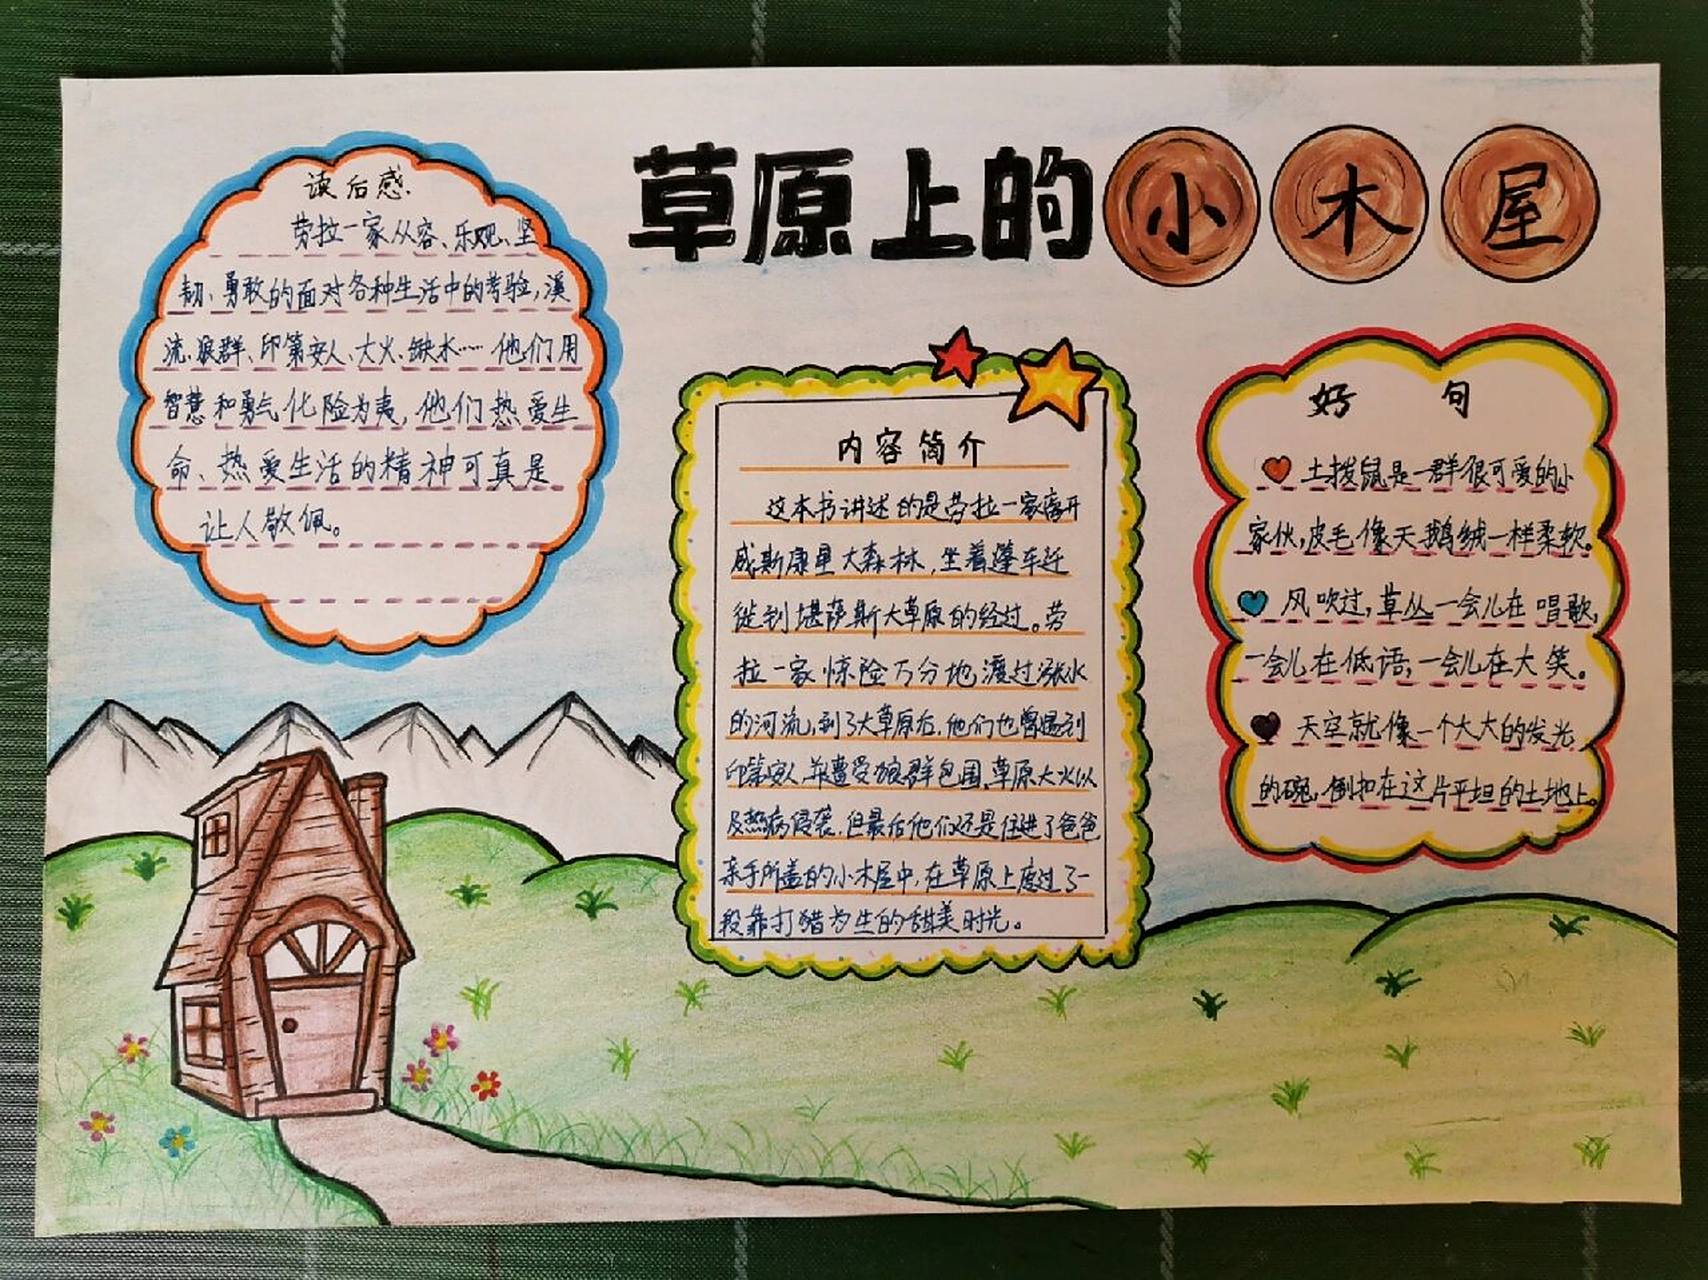 草原上的小木屋
读后感
劳拉一家从容、乐观、坚
韧、勇敢的面对各种生活中的考验,溪
流、狼群、印第安人、大火、缺水……他们用
智慧和勇气化险为夷,他们热爱生
命、热爱生活的精神可真是
让人敬佩。
内容简介
这本书讲述的是劳拉一家离开
威斯康星大森林,坐着篷车迁
徙到堪萨斯大草原的经过。劳
拉一家惊险万分地渡过涨水
的河流,到了大草原后,他们也曾遇到
印第安人并遭受狼群包围,草原大火以
及热病侵袭,但最后他们还是住进了爸爸
亲手所盖的小木屋中,在草原上度过了一
段靠打猎为生的甜美时光。
好句
土拨鼠是一群很可爱的小
家伙,皮毛像天鹅绒一样柔软。
风吹过,草丛一会儿在唱歌,
一会儿在低语,一会儿在大笑。
天空就像一个大大的发光
的碗,倒扣在这片平坦的土地上。